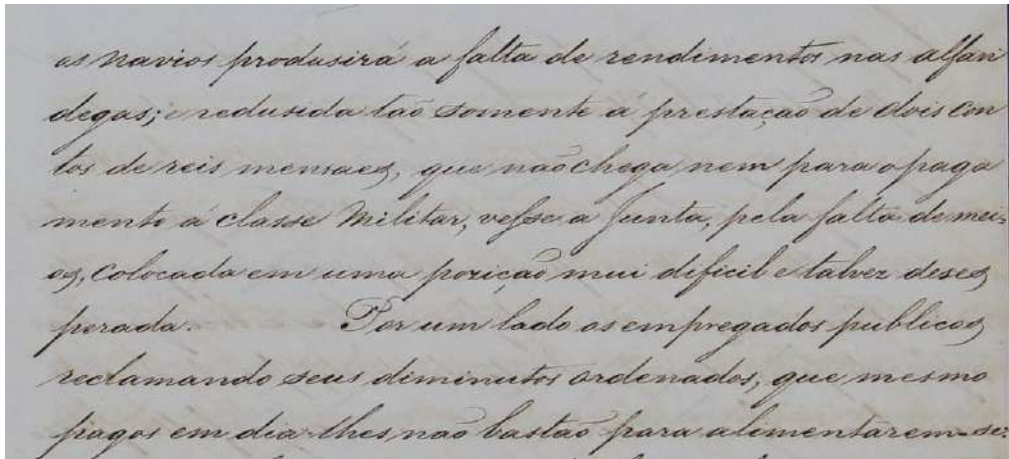 os navios produsirá a falta de rendimentos nas alfan
degas; e redusida tão somente á prestação de dois con
tos de reis mensaes, que não chega nem para o paga
mento á classe Militar, vesse a Junta, pela falta de mei-
os, colocada em uma porição mui deficil e talvez deses
perada. Por um lado os empregados publicos
reclamando seus diminutos ordenados, que mesmo
pagos em dia lhes não bastão para alimentarem-se: